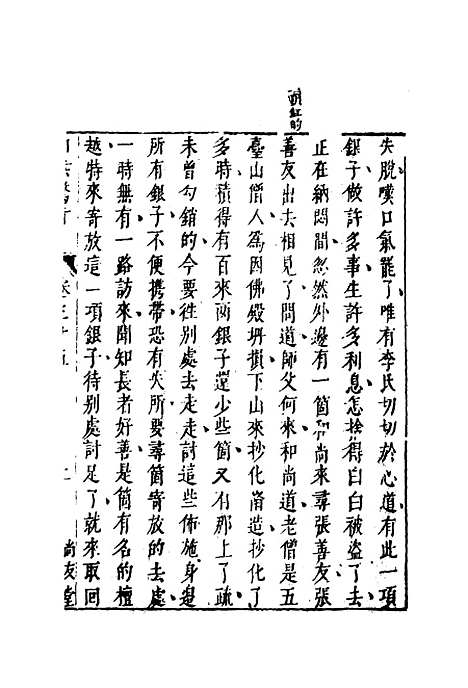 明紅的
失脫嘆口氣罷了唯有李氏切切於心道有此一項
銀子做許多事生許多利息怎捨得白白被盜了去
正在納悶間忽然外邊有一箇和尚來尋張善友張
善友出去相見了問道師父何來和尚道老僧是五
臺山僧人為因佛殿坍損下山來抄化脩造抄化了
多時積得有百來兩銀子還少些箇又有那上了疏
未曾勾銷的今要往別處去走走討這些佈施身邊
所有銀子不便攜帶恐有失所要尋箇寄放的去處
一時無有一路訪來聞知長者好善是箇有名的檀
越特來寄放這一項銀子待別處討足了就來取回
卷三十五
上
尚友堂